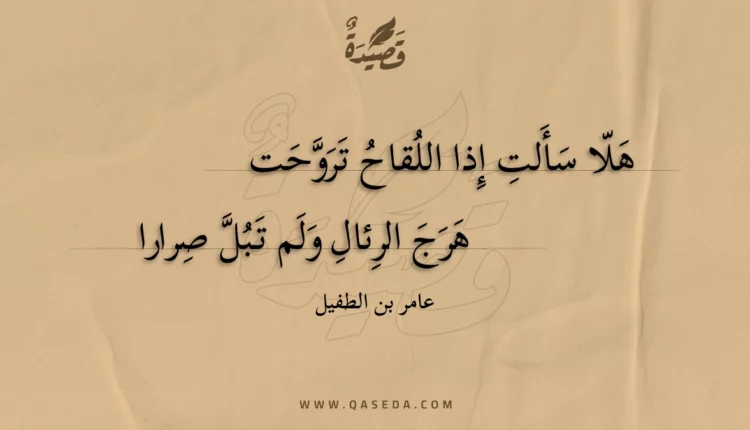 قَصِيدَةٌ
هَلّا سَأَلتِ إِذا اللُقاحُ تَرَوَّحَت
هَرَجَ الرِئالِ وَلَم تَبُلَّ صِرارا
عامر بن الطفيل
WWW.QASEDA.COM